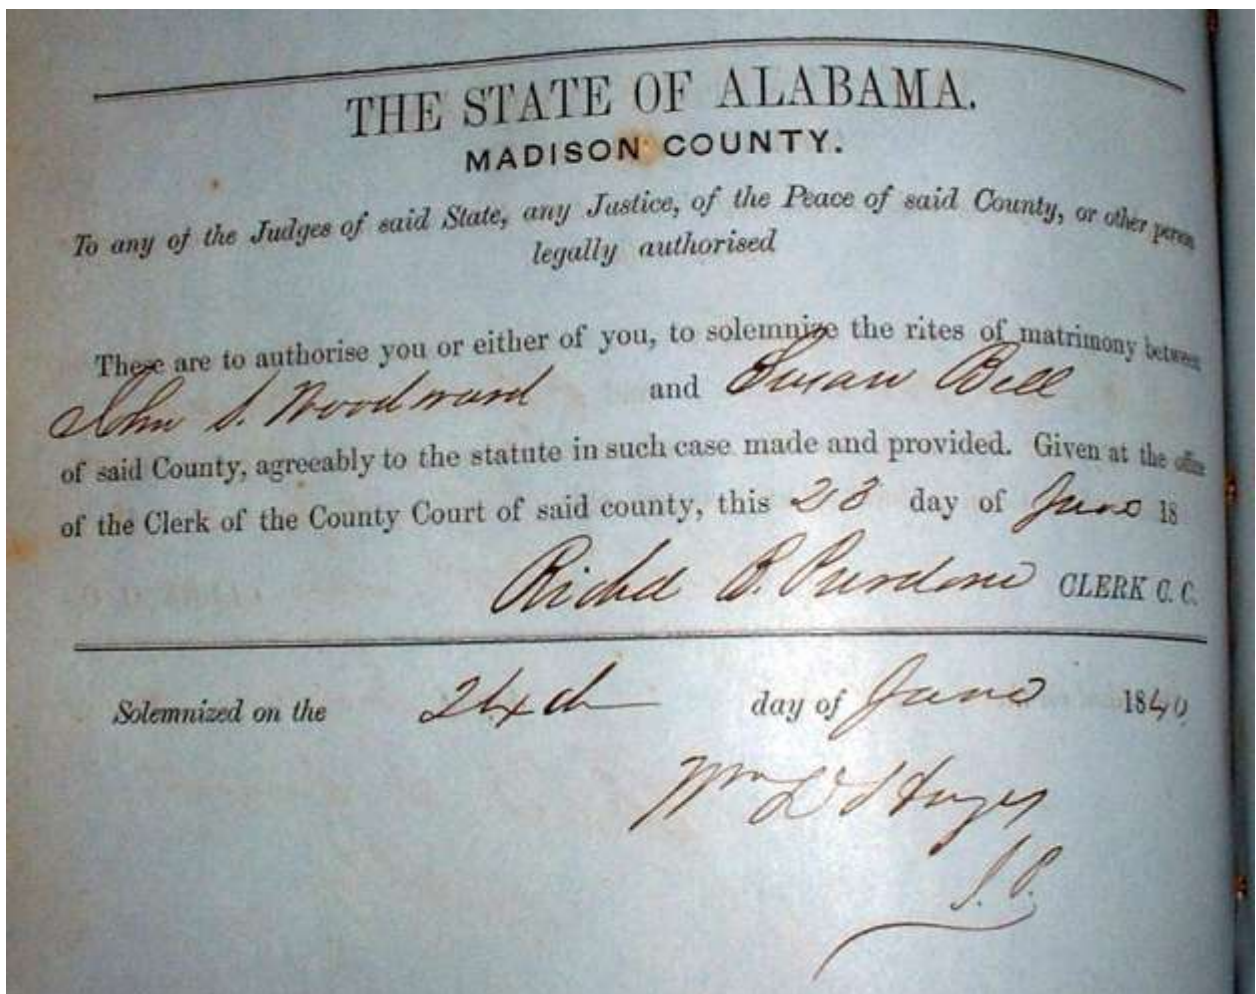 THE STATE OF ALABAMA.
MADISON COUNTY.
To any of the Judges of said State, any Justice, of the Peace of said County, or other person
legally authorised
These are to authorise you or either of you, to solemnize the rites of matrimony between
John S. Woodward and Susan Bell
of said County, agreeably to the statute in such case made and provided. Given at the office
of the Clerk of the County Court of said county, this 23 day of June 18
Richd B. Purdom CLERK C. C.
Solemnized on the 24th day of June 1840
Wm
J. P.